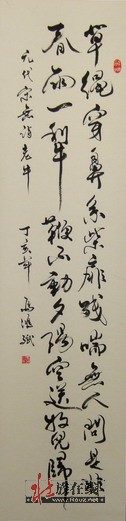 草繩穿鼻系柴扉殘喘無人問是
春雨一犁鞭不動夕陽空送牧兒歸
元代宋無詩老牛
丁亥年